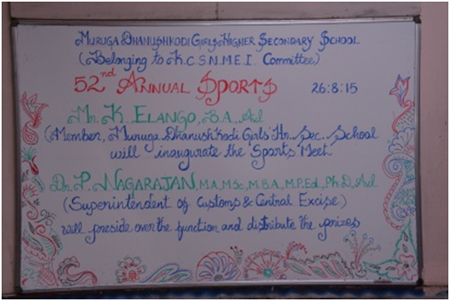 Muruga Dhanushkodi Girls Higher Secondary School
(Belonging to K.C.S.N.M.E.I. Committee)
52nd Annual Sports 26:8:15
Mr. K. Elango, B.A.,
(Member, Muruga Dhanushkodi Girls' Hr. Sec. School
will inaugurate the Sports Meet.
Dr. P. Nagarajan, M.A., M.Sc., M.B.A., M.P.Ed., Ph.D.,
(Superintendent of Customs & Central Excise)
will preside over the function and distribute the prizes